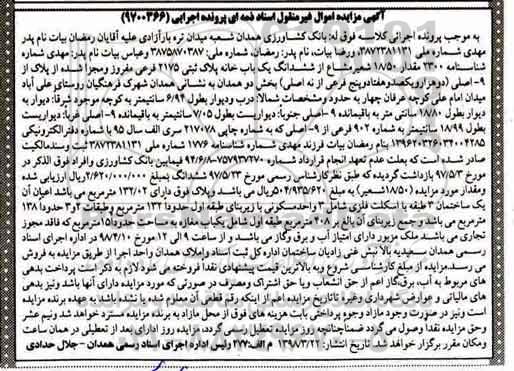 آگهی مزایده اموال غیرمنقول اسناد ذمه ای پرونده اجرایی (۹۷۰۰۳۶۶)
به موجب پرونده اجرائی کلاسه فوق له: بانک کشاورزی همدان شعبه میدان تره بارآزادی علیه آقایان رمضان بیات نام پدر
مهدی شماره ملی ۳۸۷۲۳۸۱۱۳۱ ورضا بیات، نام پدر: رمضان، شماره ملی: ۳۸۷۵۸۷۰۳۸۷ وعباس بیات نام پدر: مهدی شماره
شناسنامه ۲۳۰۰ مقدار ۱۸/۵۰ شعیرمشاع از ششدانگ یک باب خانه پلاک ثبتی ۲۱۷۵ فرعی مفروز ومجزا شده از پلاک از
۹-اصلی (دوهزارویکصدوهفتادوپنج فرعی از نه اصلی) بخش دو همدان به نشانی همدان شهرک فرهنگیان روستای علی آباد
میدان امام علی کوچه عرفان چهار به حدود ومشخصات شمالا: درب ودیوار بطول ۶/۹۴ سانتیمتر به کوچه موجود شرقاً: دیوار به
دیوار بطول ۱۸/۸۰ سانتی متر به باقیمانده ۹-اصلی جنوباً: دیواریست بطول ۷/۰۵ سانتیمتر به باقیمانده ۹-اصلی غرباً: دیواریست
بطول ۱۸/۹۹ سانتیمتر به شماره ۹۰۲ فرعی از ۹-اصلی که به شماره چاپی ۲۱۷۰۷۸ سری الف سال ۹۵ با شماره دفترالکترونیکی
۱۳۹۶۲۰۳۲۶۰۳۴۰۰۴۲۸۵ بنام رمضان بیات فرزند مهدی شماره شناسنامه ۱۷۷۶ شماره ملی ۳۸۷۲۳۸۱۱۳۱ ثبت وسندمالکیت
صادر شده است که بعلت عدم تعهد انجام قرارداد شماره ۷۵۷۹۳۷۲۷۰-۹۴/۶/۸ فیمابین بانک کشاورزی وافراد فوق الذکر در
مورخ ۹۷/۵/۳ بازداشت گردیده که طبق نظرکارشناس رسمی مورخ ۹۷/۵/۲۳ ششدانگ بمبلغ ۲/۶۲۰/۰۰۰/۰۰۰ ریال ارزیابی شده
ومقدار مورد مزایده (۱۸/۵۰شعیر) به مبلغ ۵۰۴/۹۳۵/۶۲۰ ریال می باشد. وپلاک فوق دارای ۱۳۲/۰۲ مترمربع می باشد اعیان آن
یک ساختمان ۳ طبقه با اسکلت فلزی شامل ۳ واحدمسکونی با زیربنای طبقه اول حدوداً ۱۳۲ مترمربع وطبقات ۲و۳ حدوداً ۱۳۸
مترمربع می باشد وجمع زیربنای آن بالغ بر ۴۰۸ مترمربع طبقه اول شامل یکباب مغازه بمساحت حدود۱۵مترمربع که فاقد مجوز
تجاری می باشد. ملک مزبور دارای امتیاز آب و برق وگاز می باشد و از ساعت ۹ الی ۱۲ مورخ ۹۸/۴/۱۰ در اداره اجرای اسناد
رسمی همدان سعیدیه بالا نبش غنی زادیان ساختمان اداره کل ثبت اسناد واملاک همدان واحد اجرا از طریق مزایده به فروش
می رسد.مزایده از مبلغ کارشناسی شروع وبه بالاترین قیمت پیشنهادی نقداً فروخته می شود لازم به ذکر است پرداخت بدهی
های مربوط به آب، برق، گاز اعم از حق انشعاب ویا حق اشتراک ومصرف در صورتی که مورد مزایده دارای آنها باشد ونیز بدهی
های مالیاتی و عوارض شهرداری وغیره تاتاریخ مزایده اعم از اینکه رقم قطعی آن معلوم شده یا نشده باشد به عهده برنده مزایده
است ونیز در صورت وجود مازاد وجوه پرداختی بابت هزینه های فوق از محل مازاد به برنده مزایده مسترد خواهد شد ونیم عشر
وحق مزایده نقداً وصول می گردد ضمناً چنانچه روز مزایده تعطیل رسمی گردد، مزایده روز اداری بعد از تعطیلی در همان ساعت
ومکان مقرر برگزار خواهد شد. تاریخ انتشار: ۱۳۹۸/۳/۲۲ م الف:۲۷۷ رئیس اداره اجرای اسناد رسمی همدان - جلال حدادی